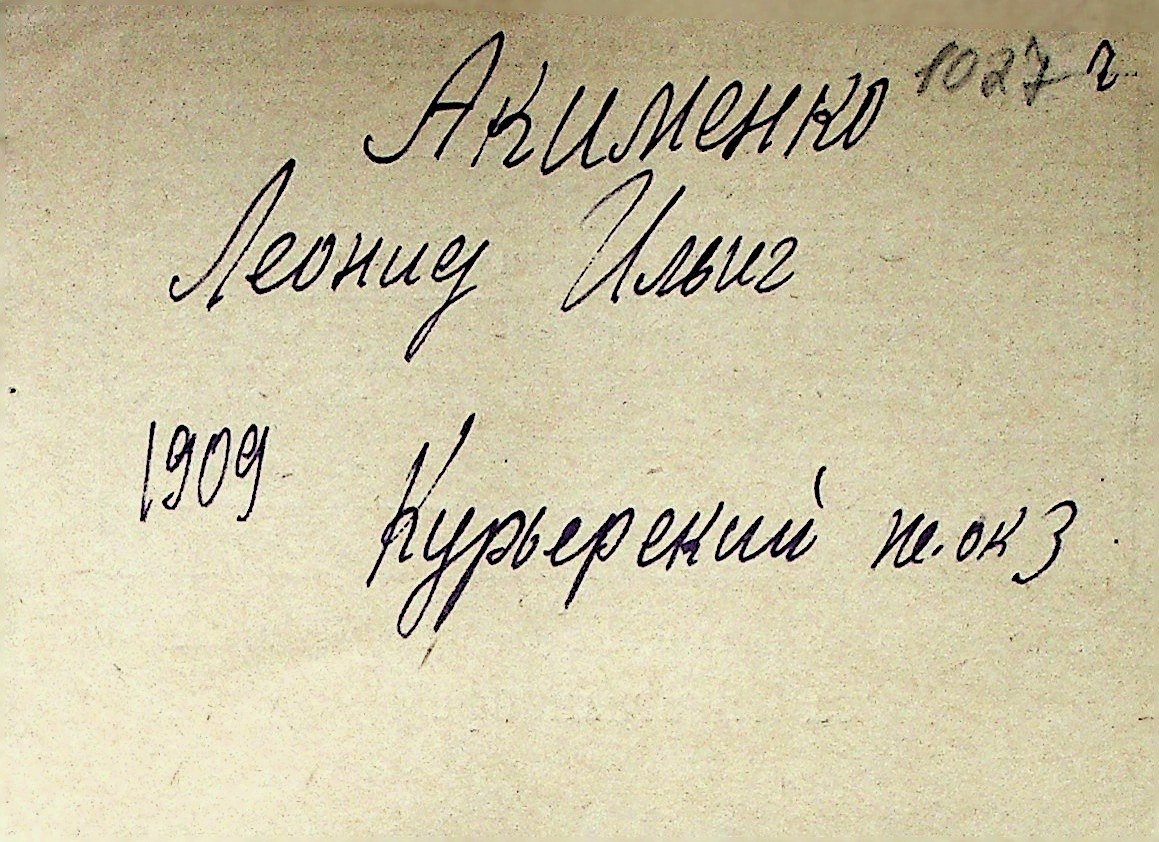 Акименко 1027 г
Леонид Ильич
1909 Курьерский